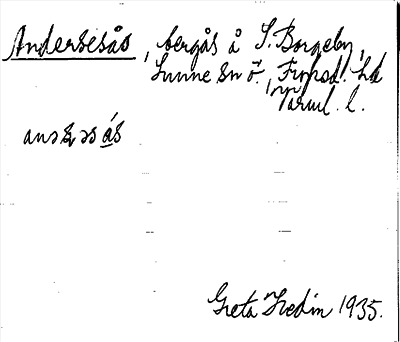 Andersesås, bergås å S. Borgeby,
Sunne sn ö., Fryksd. hd
Värml. l.
anəʂəsás
Greta Hedin 1935.